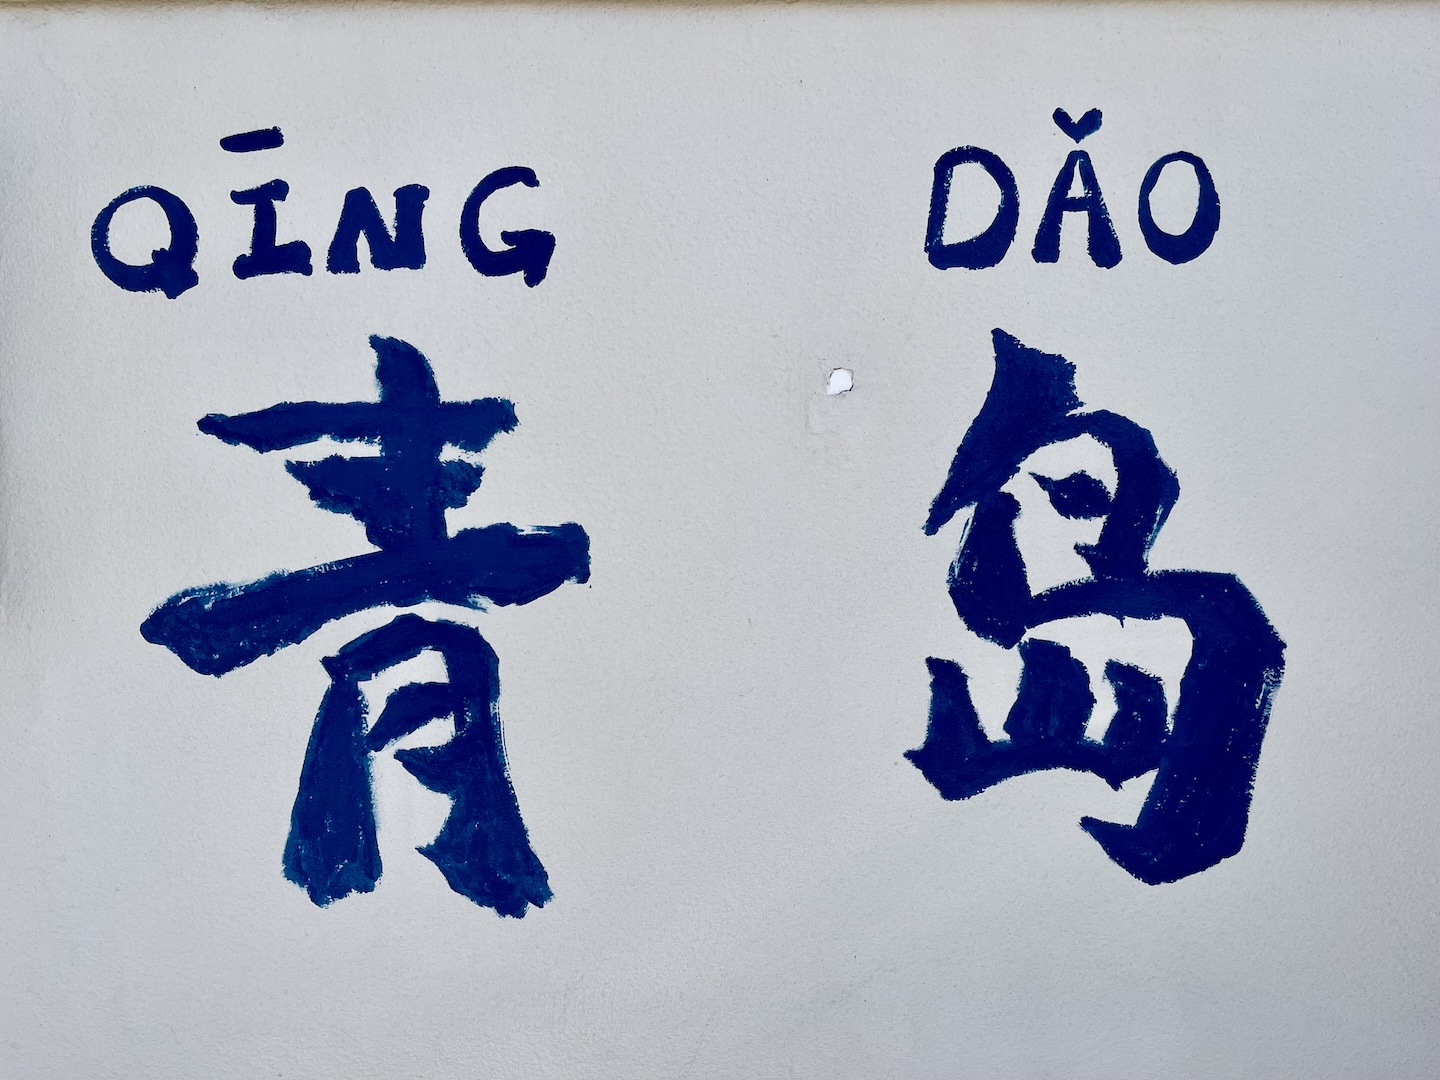 QĪNG DǍO
青岛